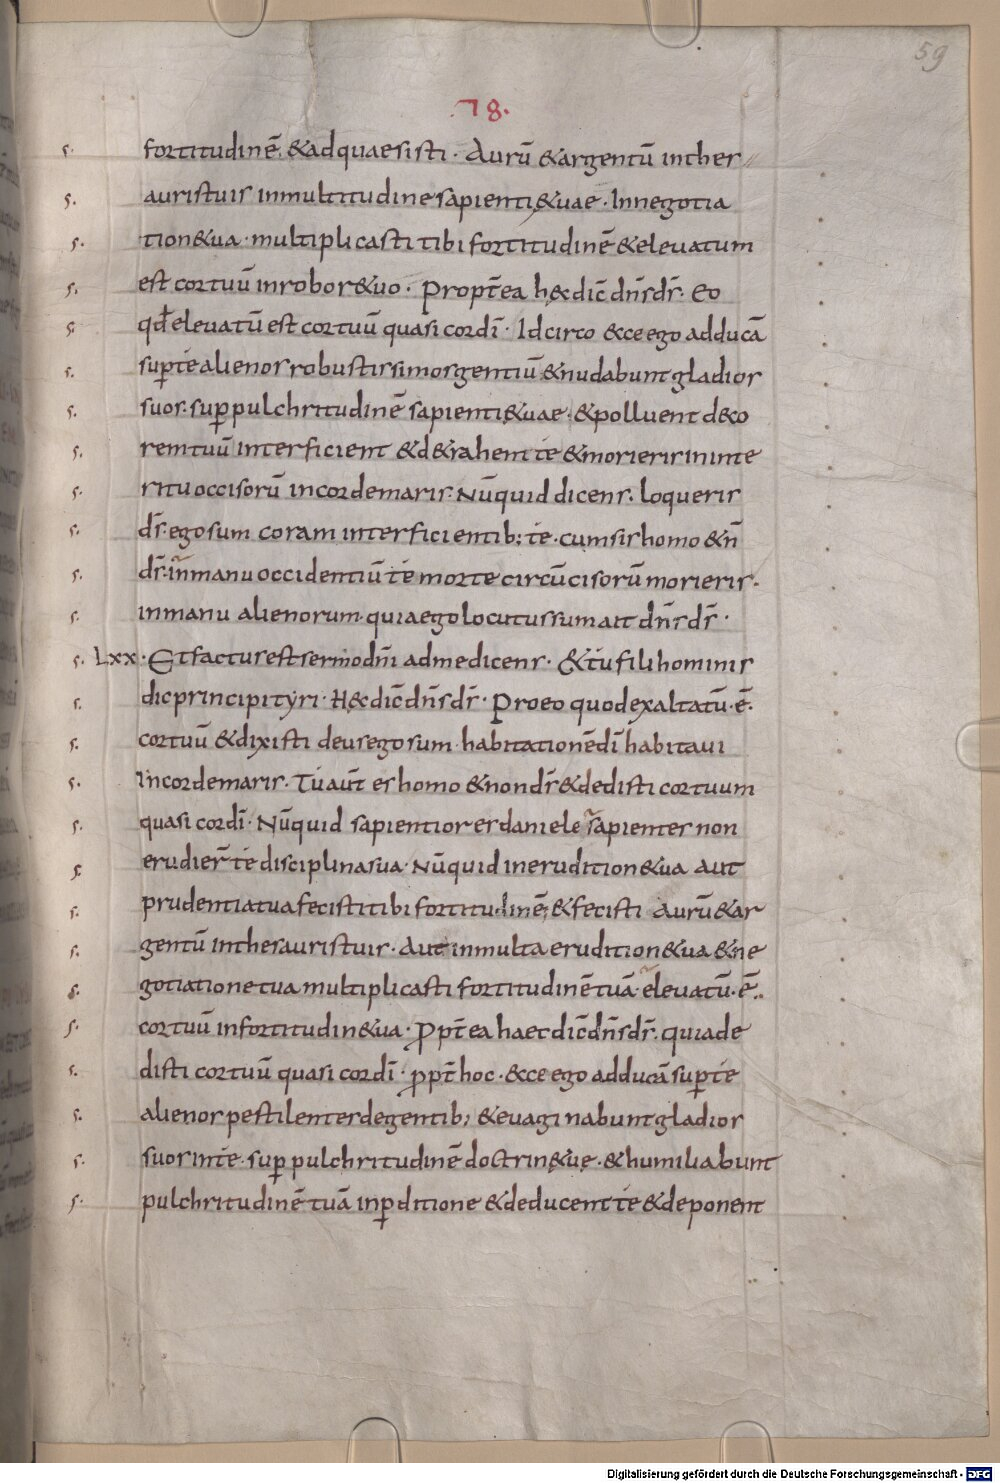 59
78.
s. fortitudinē. &adquaesisti. Aurū &argentū inthes
s. auristuis inmultitudine sapienti&uae. Innegotia
s. tion&ua. multiplicasti tibi fortitudinē &elevatum
s. est cortuū inrobor&uo. Propt̄ea hęc dic̄ dn̄sds̄. Eo
s. qđelevatū est cortuū quasi cordī. Idcirco &ceego adducā
s. sup̄te alienos robustissimosgentiū &nudabuntgladios
s. suos. sup̄pulchritudinē sapienti&uae. &polluent deco
s. remtuū interficient &d&rahent te &morierisininte
s. rituoccisorū incordemaris. Nūquid dicens. loqueris
s. ds̄. egosum coram interficientib; te. cumsishomo &n̄
s. ds̄. inmanuoccidentiū te morte circūcisorū morieris.
s. inmanu alienorum. quiaegolocutussumait dn̄sds̄.
s. Lxx. Etfactusestsermodn̄i admedicens. &tu filihominis
s. dicprincipityri. Hęc dic̄dn̄sds̄. Proeo quodexaltatū. ē.
s. cortuū &dixisti deusegosum. habitationēdī habitavi
s. incordemaris. Tuaūt es homo &nonds̄ &dedisti cortuum
s. quasi cordī. Nūquid sapientioresdaniele sapientes non
s. erudier̄ te disciplinasua. Nūquid inerudition&ua aut
s. prudentiatuafecistitibi fortitudinē; &fecisti Aurū &ar
s. gentū inthesauristuis. Aut inmultaerudition&ua &ne
s. gotiationetua multiplicasti fortitudinētuā. elevatū. ē..
s. cortuū infortitudin&ua. Prop̄t̄ea haec dic̄dn̄sds̄. quiade
s. disti cortuū quasi cordī. prop̄t̄ hoc. &ceego adducāsup̄te
s. alienospestilentesdegentib; &evaginabuntgladios
s. suosinte. sup̄ pulchritudinē doctrin&uę. &humiliabunt
s. pulchritudinē tuā inp̄ditione &deducent te &deponent
Digitalisierung gefördert durch die Deutsche Forschungsgemeinschaft - DFG